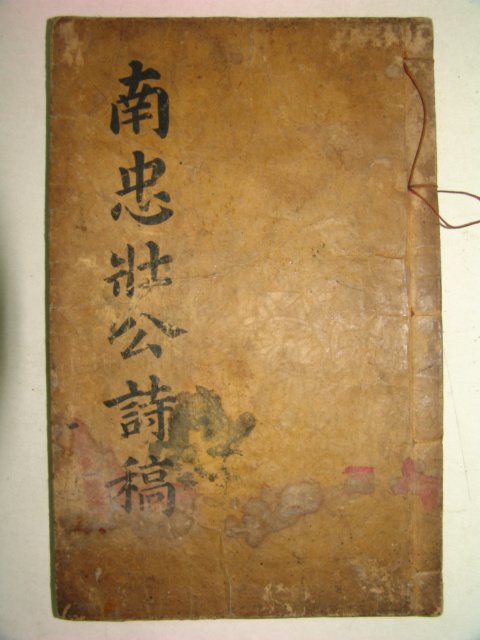 南忠壯公詩稿